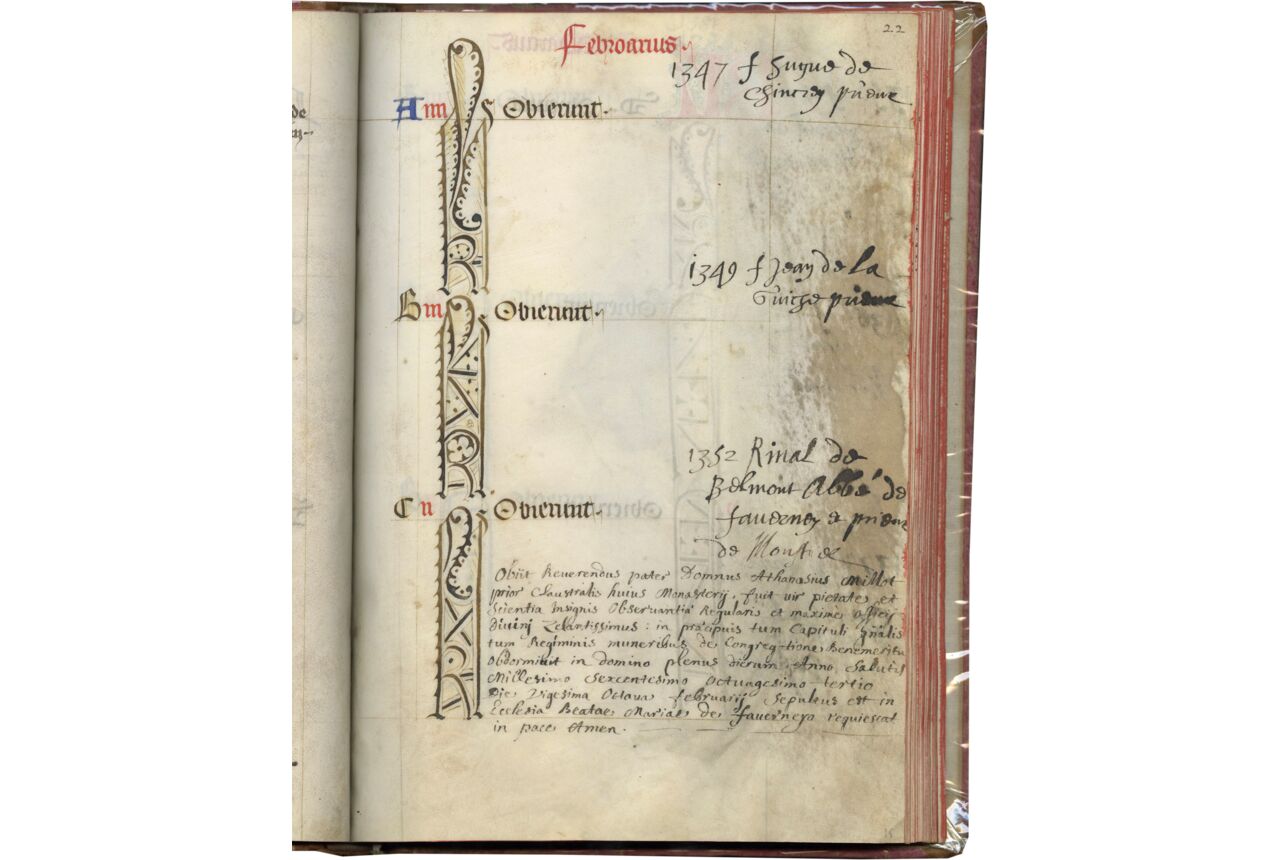 22
Febroarius.
1347 f hugue de
Chintrey prieur
A iiii Obierunt.
1349 f Jean de la
Guiche prieur
B iii Obierunt.
1352 Rinal de
Belmont Abbé de
faverney et prieur
de
C ii Obierunt.
Obiit Reverendus pater Domnus Athanasius Millot
prior Claustralis huius Monasterij, fuit vir pietate et
Scientia Insignis Observantiæ Regularis et maxime officij
divinj Zelantissimus : in præcipuis tum Capituli gñalis
tum Regiminis muneribus de Congregatione Benemeritus
Obdormivit in domino plenus dierum, Anno Salutis
Millesimo Sexcentesimo Octuagesimo tertio
Die Vigesima Octava februarij Sepultus est in
Ecclesia Beatae Mariae de faverneyo requiescat
in pace Amen.